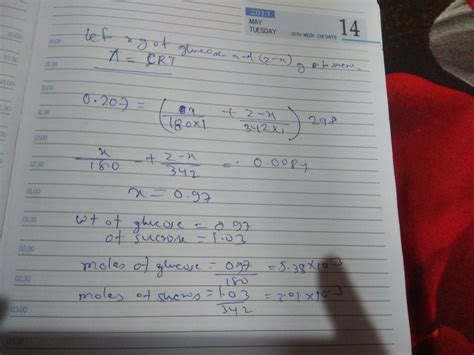 2013
MAY
TUESDAY
20TH WEEK 134 DAYS
14
Let x g of glucose and (2-x) g of sucrose
π = CRT
0.207 = (x/180×1 + 2-x/342×1) 298
x/180 + 2-x/342 = 0.0084
x = 0.97
wt of glucose = 0.97
of sucrose = 1.03
moles of glucose = 0.97/180 = 5.38×10-3
moles of sucros = 1.03/342 = 3.01×10-3
01.00
11.30
12.00
12.30
01.00
01.30
02.00
02.30
03.00
03.30